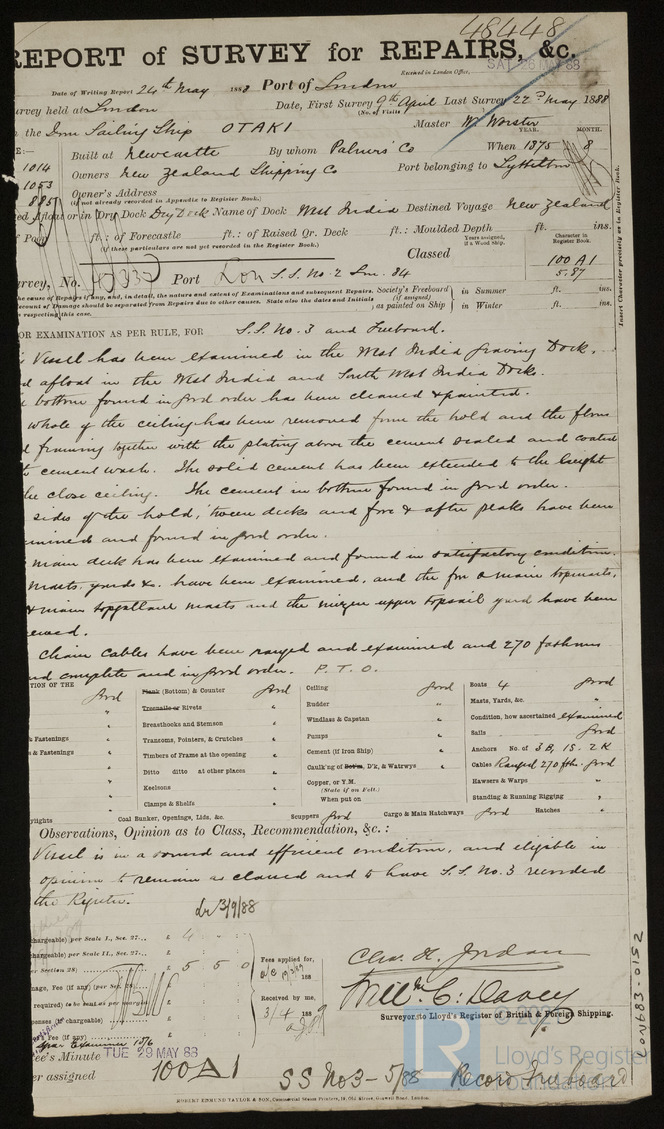 48448
REPORT of SURVEY for REPAIRS, &c.
Received in London Office,
SAT. 26 MAY 88
Date of Writing Report 24th May 1888 Port of London
urvey held at London Date, First Survey 9th April Last Survey 22nd May 1888
(No. of Visits
the Iron Sailing Ship OTAKI Master W. Worster
YEAR. MONTH.
E:—
1014 Built at Newcastle By whom Palmers' Co When 1875 8
1053 Owners New Zealand Shipping Co Port belonging to Lyttelton
885 Owner's Address
(if not already recorded in Appendix to Register Book.)
ed Afloat or in Dry Dock Dry Dock Name of Dock West India Destined Voyage New Zealand
f Poop ft.; of Forecastle ft.; of Raised Qr. Deck ft.; Moulded Depth ft. ins.
(if these particulars are not yet recorded in the Register Book.)
Years assigned, if a Wood Ship.
Character in Register Book.
Classed 100 A1
5.87
urvey, No. Port Lon S.S. No. 2 Lon. 84
Insert Character precisely as in Register Book.
he cause of Repairs if any, and, in detail, the nature and extent of Examinations and subsequent Repairs.
account of Damage should be separated from Repairs due to other causes. State also the dates and Initials
respecting this case.
Society's Freeboard (if assigned) as painted on Ship
in Summer ft. ins.
in Winter ft. ins.
OR EXAMINATION AS PER RULE, FOR S.S. No. 3 and Freeboard.
Vessel has been examined in the West India Graving Dock,
d afloat in the West India and South West India Dock.
bottom found in good order has been cleaned & painted.
whole of the ceiling has been removed from the hold and the floors
d framing together with the plating above the cement scaled and coated
cement wash. The solid cement has been extended to the height
he close ceiling. The cement in bottom found in good order.
sides of the hold, tween decks and fore & after peaks have been
mined and found in good order.
main deck has been examined and found in satisfactory condition.
masts, yards &c. have been examined, and the fore & main topmasts,
& main topgallant masts and the mizen upper topsail yard have been
ewed.
Chain Cables have been ranged and examined and 270 fathoms
nd complete and in good order. P.T.O.
TION OF THE
good
Fastenings "
s & Fastenings "
Plank (Bottom) & Counter good
Treenails or Rivets "
Breasthooks and Stemson "
Transoms, Pointers, & Crutches "
Timbers of Frame at the opening "
Ditto ditto at other places "
Keelsons "
Clamps & Shelfs "
Ceiling good
Rudder "
Windlass & Capstan "
Pumps "
Cement (if Iron Ship) "
Caulk'ng of Bot'm, D'k, & Watrwys "
Copper, or Y.M.
(State if on Felt.)
When put on
Boats 4 good
Masts, Yards, &c. "
Condition, how ascertained examined
Sails good
Anchors No. of 3B, 1S. 2K
Cables Ranged 270 fths. good
Hawsers & Warps "
Standing & Running Rigging "
ylights Coal Bunker, Openings, Lids, &c. Scuppers good Cargo & Main Hatchways good Hatches "
Observations, Opinion as to Class, Recommendation, &c.:
Vessel is in a sound and efficient condition, and eligible in
opinion to remain as classed and to have S.S. No. 3 recorded
the Register.
3/9/88
chargeable) per Scale I., Sec. 27... £ 4
chargeable) per Scale II., Sec. 27... £
er Section 28) £ 5 5 0
mage, Fee (if any) (per Sec. £
required) to be sent as per margin £
penses (if chargeable) £
Fee (if any) £
Fees applied for, 188
Received by me,
3/4 1889
Chas. H. Jordan
Will'm C. Davey
Surveyors to Lloyd's Register of British & Foreign Shipping.
tee's Minute TUE 29 MAY 88
er assigned 100 A1
SS No 3 - 5/88 Record Freeboard
ROBERT EDMUND TAYLOR & SON, Commercial Steam Printers, 19, Old Street, Goswell Road, London.
LON683-0152
LR
Lloyd's Register
Foundation